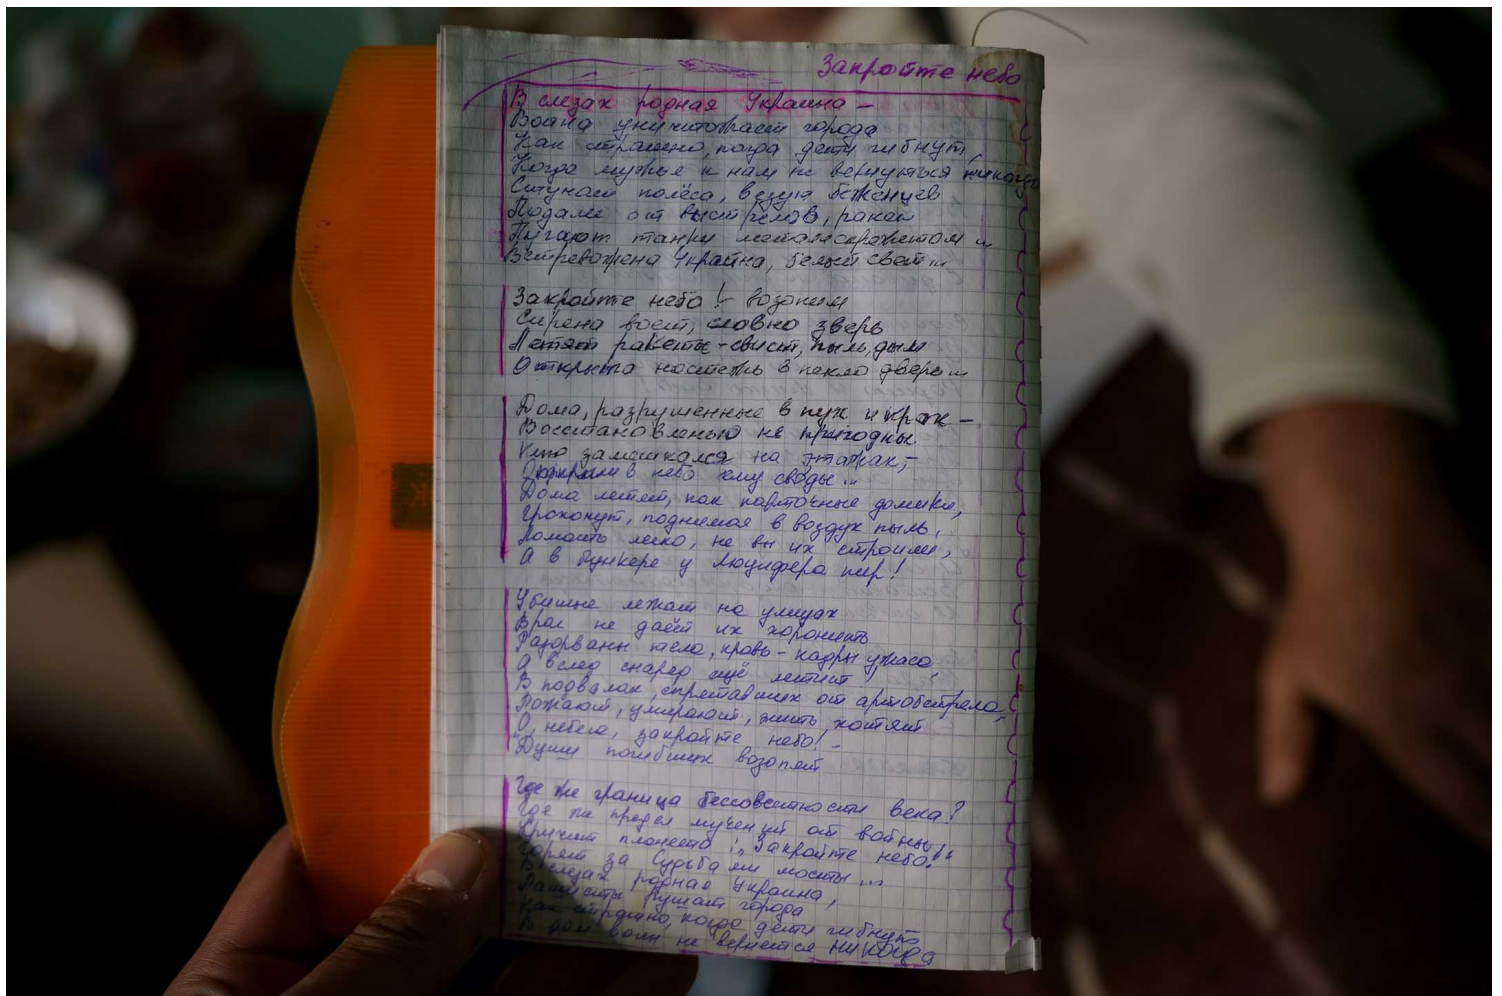 Закройте небо
В слезах родная Украина –
Война уничтожает города
Как страшно, когда дети гибнут,
Когда мужья к нам не вернуться никогда
Стучат колёса, везут беженцев
Подале от выстрелов, ракет
Пугают танки металоскрежетом...
Встревожена Украина, белый свет...
Закройте небо! – возопим
Сирена воет, словно зверь
Летят ракеты – свист, пыль, дым
Открыта настежь в пекло дверь...
Дома, разрушенные в пух и крах –
Восстановленью не пригодны
Кто замешкался на этажах, –
Открыли в небо ему своды...
Дома летят, как карточные домики,
Грохочут, поднимая в воздух пыль,
Ломать легко, не вы их строили,
А в бункере у Люцифера пир!
Убитые лежат на улицах
Враг не даёт их хоронить
Разорваны тела, кровь – кадры ужаса,
А вслед снаряд ещё летит
В подвалах, спрятавших от артобстрела,
Рожают, умирают, жить хотят
О, небо, закройте небо! –
Души погибших возопят
Где же граница бессовестности века?
Где же предел мучений от войны
Кричит планета: „Закройте небо!"
Горят за Судьбаям мосты...
В слезах родная Украина,
рушат города
Как страшно, когда дети гибнут
В дом воин не вернется никогда